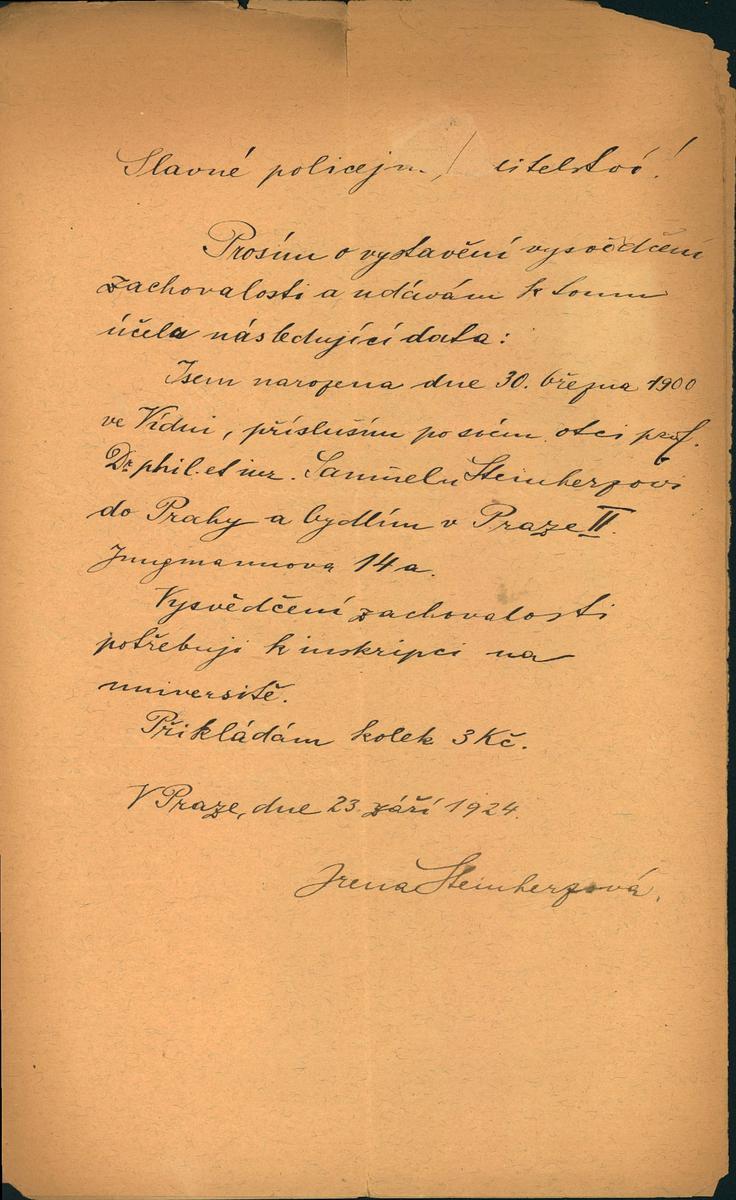 Slavné policejn / itelství!
Prosím o vystavění vysvědčení
zachovalosti a udávám k tomu
účelu následující data:
Jsem narozena dne 30. března 1900
ve Vídni, příslušim po svém otci prof.
Dr. phil. et iur. Samuelu Steinherzovi
do Prahy a bydlím v Praze II.
Jungmannova 14a.
Vysvědčení zachovalosti
potřebuji k inskripci na
universitě.
Přikládám kolek 3 Kč.
V Praze, dne 23. září 1924.
Irena Steinherzová.